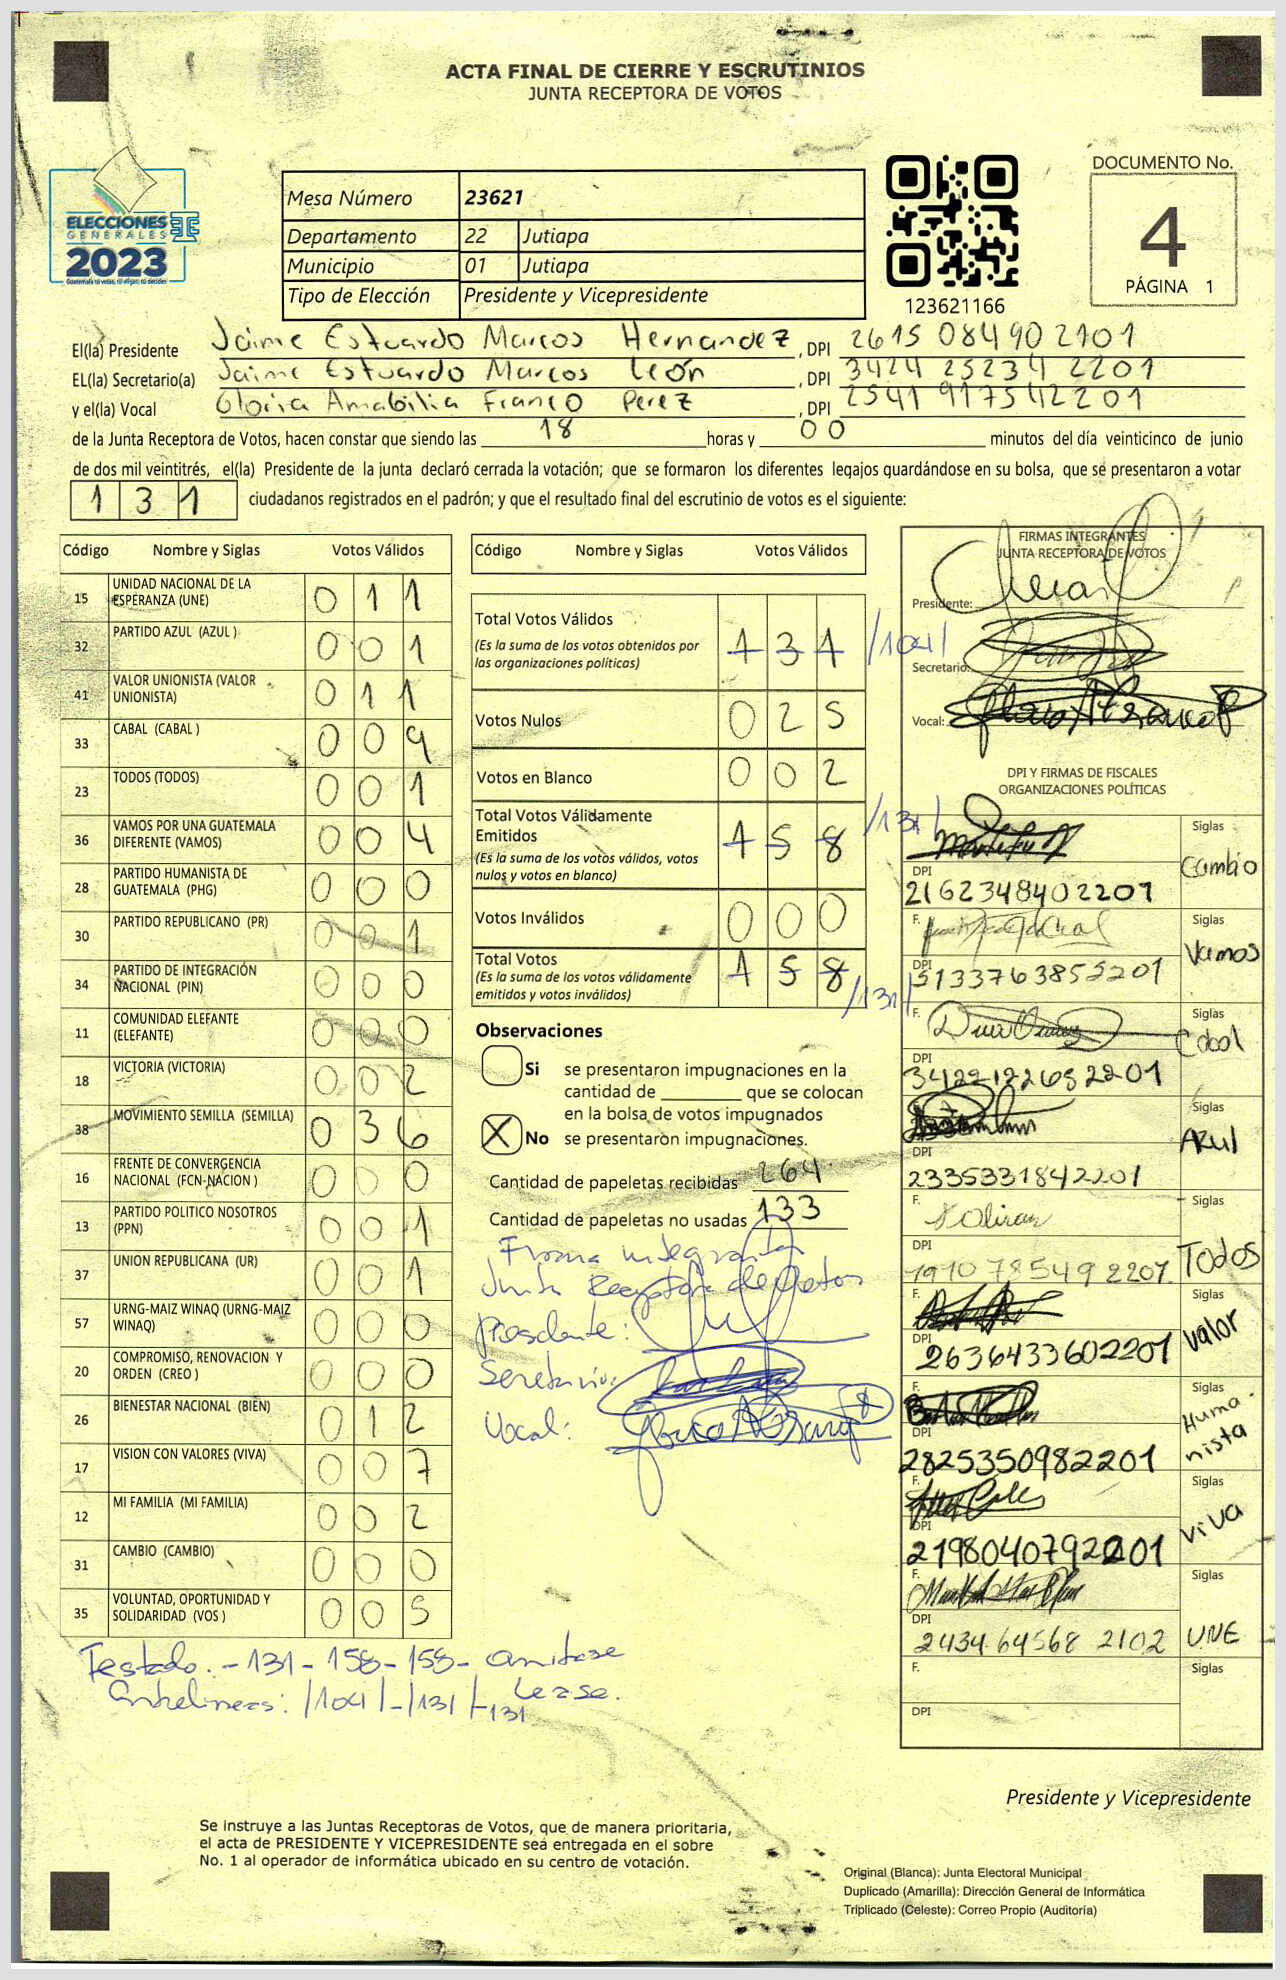 ACTA FINAL DE CIERRE Y ESCRUTINIOS
JUNTA RECEPTORA DE VOTOS
ELECCIONES
GENERALES
2023
Guatemala tú votas, tú eliges, tú decides
Mesa Número 23621
Departamento 22 Jutiapa
Municipio 01 Jutiapa
Tipo de Elección Presidente y Vicepresidente
123621166
DOCUMENTO No.
4
PÁGINA 1
El(la) Presidente Jaime Estuardo Marcos Hernandez, DPI 2615 08490 2101
EL(la) Secretario(a) Jaime Estuardo Marcos León, DPI 3424 25234 2201
y el(la) Vocal Gloria Amabilia Franco Perez, DPI 2541 91754 2201
de la Junta Receptora de Votos, hacen constar que siendo las 18 horas y 00 minutos del día veinticinco de junio
de dos mil veintitrés, el(la) Presidente de la junta declaró cerrada la votación; que se formaron los diferentes legajos guardándose en su bolsa, que se presentaron a votar
131 ciudadanos registrados en el padrón; y que el resultado final del escrutinio de votos es el siguiente:
Código Nombre y Siglas Votos Válidos
15 UNIDAD NACIONAL DE LA ESPERANZA (UNE) 011
32 PARTIDO AZUL (AZUL ) 001
41 VALOR UNIONISTA (VALOR UNIONISTA) 011
33 CABAL (CABAL ) 009
23 TODOS (TODOS) 001
36 VAMOS POR UNA GUATEMALA DIFERENTE (VAMOS) 004
28 PARTIDO HUMANISTA DE GUATEMALA (PHG) 000
30 PARTIDO REPUBLICANO (PR) 001
34 PARTIDO DE INTEGRACIÓN NACIONAL (PIN) 000
11 COMUNIDAD ELEFANTE (ELEFANTE) 000
18 VICTORIA (VICTORIA) 002
38 MOVIMIENTO SEMILLA (SEMILLA) 036
16 FRENTE DE CONVERGENCIA NACIONAL (FCN-NACION ) 000
13 PARTIDO POLITICO NOSOTROS (PPN) 001
37 UNION REPUBLICANA (UR) 001
57 URNG-MAIZ WINAQ (URNG-MAIZ WINAQ) 000
20 COMPROMISO, RENOVACION Y ORDEN (CREO ) 000
26 BIENESTAR NACIONAL (BIEN) 012
17 VISION CON VALORES (VIVA) 007
12 MI FAMILIA (MI FAMILIA) 002
31 CAMBIO (CAMBIO) 000
35 VOLUNTAD, OPORTUNIDAD Y SOLIDARIDAD (VOS ) 005
Testado. -131-158-158- omitase
Entrelineas: /104/-/131/-131 Lease.
Código Nombre y Siglas Votos Válidos
Total Votos Válidos 131 /104/
(Es la suma de los votos obtenidos por
las organizaciones políticas)
Votos Nulos 025
Votos en Blanco 002
Total Votos Válidamente
Emitidos 158 /131/
(Es la suma de los votos válidos, votos
nulos y votos en blanco)
Votos Inválidos 000
Total Votos 158 /131/
(Es la suma de los votos válidamente
emitidos y votos inválidos)
Observaciones
Si se presentaron impugnaciones en la
cantidad de ________ que se colocan
en la bolsa de votos impugnados
X No se presentaron impugnaciones.
Cantidad de papeletas recibidas 264
Cantidad de papeletas no usadas 133
Firma integrantes
Junta Receptora de Votos
Presidente:
Secretario:
Vocal:
FIRMAS INTEGRANTES
JUNTA RECEPTORA DE VOTOS
Presidente:
Secretario:
Vocal:
DPI Y FIRMAS DE FISCALES
ORGANIZACIONES POLÍTICAS
Siglas Cambio
DPI 2162348402207
F. Siglas Vamos
DPI 5133763855201
F. Siglas Cabal
DPI 3422212265 2201
Siglas AZUL
DPI 2335331842201
F. Siglas Todos
DPI 1910 78549 2207
F. Siglas Valor
DPI 2636433602201
F. Siglas Humanista
DPI 2825350982201
F. Siglas Viva
DPI 2198040792201
F. Siglas UNE
DPI 2434 64568 2102
F. Siglas
DPI
Presidente y Vicepresidente
Se instruye a las Juntas Receptoras de Votos, que de manera prioritaria,
el acta de PRESIDENTE Y VICEPRESIDENTE sea entregada en el sobre
No. 1 al operador de informática ubicado en su centro de votación.
Original (Blanca): Junta Electoral Municipal
Duplicado (Amarilla): Dirección General de Informática
Triplicado (Celeste): Correo Propio (Auditoría)